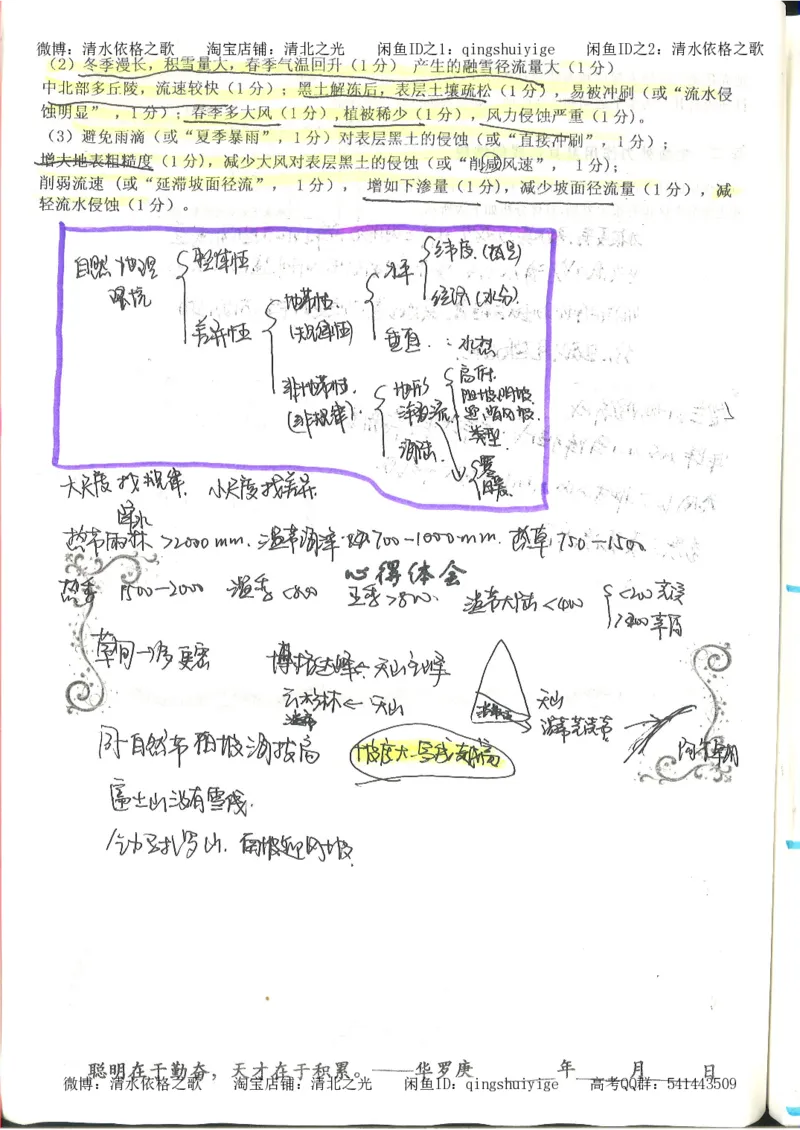 微博：清水依格之歌　淘宝店铺：清北之光　闲鱼ID之1：qingshuiyige　闲鱼ID之2：清水依格之歌
（2）冬季漫长，积雪量大，春季气温回升（1分） 产生的融雪径流量大（1分）
中北部多丘陵，流速较快（1分）；黑土解冻后，表层土壤疏松（1分），易被冲刷（或“流水侵
蚀明显”，1分）；春季多大风（1分），植被稀少（1分），风力侵蚀严重（1分）。
（3）避免雨滴（或“夏季暴雨”，1分）对表层黑土的侵蚀（或“直接冲刷”，1分）；
增大地表粗糙度（1分），减少大风对表层黑土的侵蚀（或“削减风速”， 1分）；
削弱流速（或“延滞坡面径流”， 1分）， 增加下渗量（1分），减少坡面径流量（1分），减
轻流水侵蚀（1分）。
自然地理环境
整体性
差异性
地带性（规律性）
非地带性（非规律）
水平
纬度（热量）
经度（水分）
垂直：水热
地形
洋流
海陆
高低
阳坡阴坡
迎、背风坡
类型
寒
暖
大尺度找规律 小尺度找差异
降水
热带雨林 >2000mm. 温带海洋 700-1000mm. 热草 750-1500
热季 1500-2000 温季 <800 亚季 >800 温带大陆 <400
心得体会
博格达峰←天山主峰
云杉林←天山
天山
同一自然带 阳坡海拔高
富士山没有雪线
南坡迎风坡
聪明在于勤奋，天才在于积累。——华罗庚　年　月　日
微博：清水依格之歌　淘宝店铺：清北之光　闲鱼ID：qingshuiyige　高考QQ群：541443509